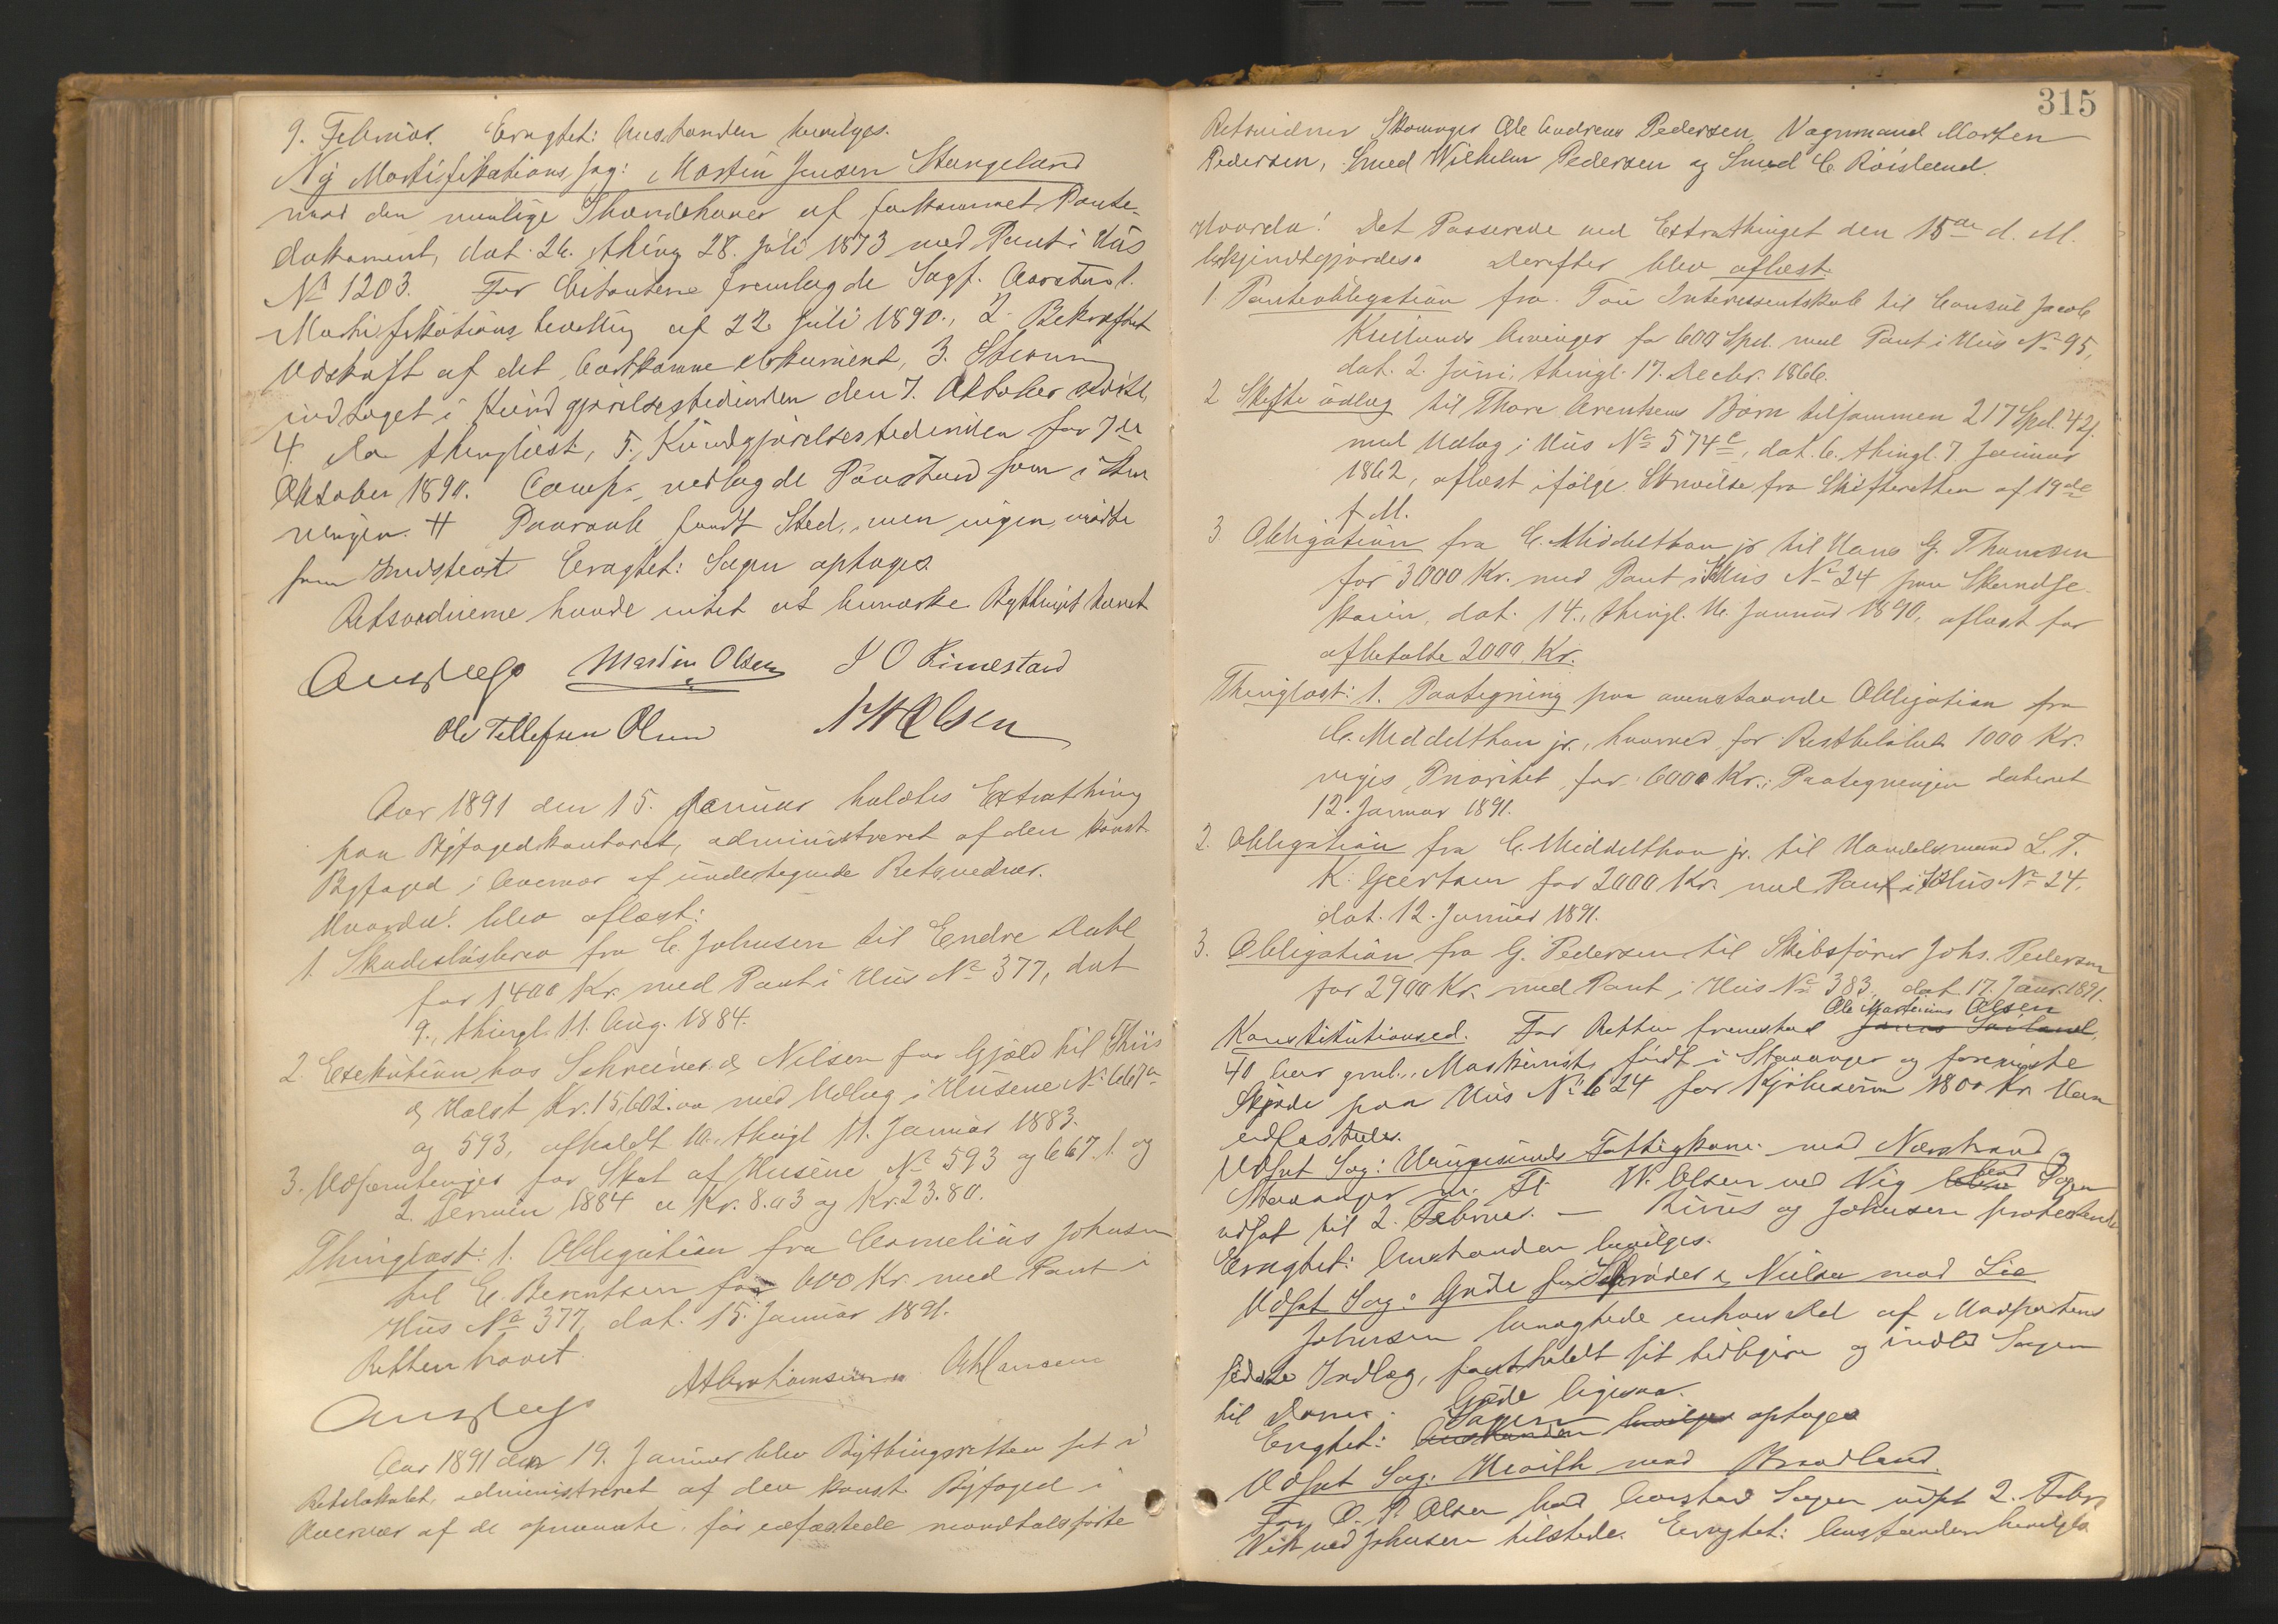 9. Februar. Eragtet: Anstanden bevilges.
Ny Mortifikations Sag: Martin Jensen Stangeland
mod den mulige Ihændehaver af forkommet Pante-
dokument, dat. 26. thingl. 28. Juli 1873 med Pant i Hus
No 1203. For Citanten fremlagde Sagf. Aarstad 1.
Mortifikationsbevilling af 22 Juli 1890., 2. Bekræftet
Udskrift af det bortkomne Dokument, 3. Stevning
indtaget i Kundgjørelsestidenden den 7. Oktober
4. thinglæst, 5. Kundgjørelsestidenden for 7de
Oktober 1890. Comp. nedlagde Paastand som i Stev
ningen. Paaraab fandt Sted, men ingen mødte
som Indstevnt Eragtet: Sagen optages.
Retsvidnerne havde intet at bemærke Bythinget hævet
Martin Olsen J O Rimestad
Ole Tollefsen Olsen Olsen
Aar 1891 den 15. Januar holdtes Extrathing
paa Byfogedkontoret, administreret af den konst.
Byfoged i Overvær af undertegnede Retsvidner.
Hvorda! blev aflæst:
1. Skadesløsbrev fra C. Johnsen til Endre Dahl
for 1400 Kr. med Pant i Hus No 377, dat
9., thingl. 11. Aug. 1884.
2. Exekution hos Schreiner & Nilsen for Gjæld til Thiis
& Holst Kr. 15,602.00 med Udlæg i Husene No 667a
og 593, afholdt 10. thingl 11. Januar 1883.
3. Udpantninger for Skat af Husene No 593 og 667. 1. og
2. Termin 1884 a Kr. 8.03 og Kr. 23.80.
Thinglæst: 1. Obligation fra Cornelius Johnsen
til E. Berentsen for 600 Kr. med Pant i
Hus No 377, dat. 15. Januar 1891.
Retten hævet.
A Abrahamsen Hansen
Aar 1891 den 19. Januar blev Bythingsretten sat i
Retslokalet, administreret af den konst. Byfoged i
Overvær af de opnævnte, før edfæstede mandtalsførte
315
Retsvidner Skomager Ole Andreas Pedersen, Vognmand Morten
Pedersen, Smed Wilhelm Pedersen og Smed C. Røisland.
Hvorda! Det Passerede ved Extrathinget den 15de d. M.
bekjendtgjordes. Derefter blev aflæst.
1. Panteobligation fra Tou Interessentskab til Consul Jacob
Kiellands Arvinger for 600 Spd. med Pant i Hus No 95,
dat. 2. Juni, thingl. 17. Decbr. 1866.
2 Skifteudlæg til Thore Arentsens Børn tilsammen 217 Spd. 42 s.
med Udlæg i Hus No 574c, dat. 6. thingl. 7. Januar
1862, aflæst ifølge Skrivelse fra Skifteretten af 19de
f. M.
3. Obligation fra C. Middelthon jr til Hans G. Thomsen
for 3000 Kr. med Pant i Hus No 24 paa Skandse-
kaien, dat. 14., thingl. 16. Januar 1890, aflæst for
afbetalte 2000 Kr.
Thinglæst: 1. Paategning paa ovenstaaende Obligation fra
C. Middelthon jr., hvorved for Restbeløbet 1000 Kr.
viges Prioritet for 6000 Kr.; Paategningen dateret
12. Januar 1891.
2. Obligation fra C. Middelthon jr. til Handelsmand L. T.
K. Geertsen for 2000 Kr. med Pant i Hus No 24.
dat. 12. Januar 1891.
3. Obligation fra G. Pedersen til Skibsfører Johs. Pedersen
for 2900 Kr. med Pant i Hus No 383, dat. 17. Januar 1891.
Ole Martinius Olsen
Konstitutionsed. For Retten fremstod
40 Aar gml., Maskinist, født i Stavanger og foreviste
Skjøde paa Hus No 624 for Kjøbesum 1800 Kr. Han
edfæstedes.
Udsat Sag: Haugesunds Fattigkom. mod Nærstrand &
Stavanger m. Fl. W. Olsen ved Vig bad Sagen
udsat til 2. Februar. — Riiris og Johnsen protesterede
Eragtet: Anstanden bevilges.
Udsat Sag: Gude for Schrøder & Nielsen mod Lie
Johnsen benægtede enhver Del af Modpartens
sidste Indlæg, fastholdt sit tidligere og indlod Sagen
til Doms. Gude ligesaa.
Eragtet: Sagen optages
Udsat Sag: mod Braadland.
For O. P. Olsen bad Aarstad Sagen udsat 2. Febr
Wik ved Johnsen tilstede. Eragtet: Anstanden bevilges